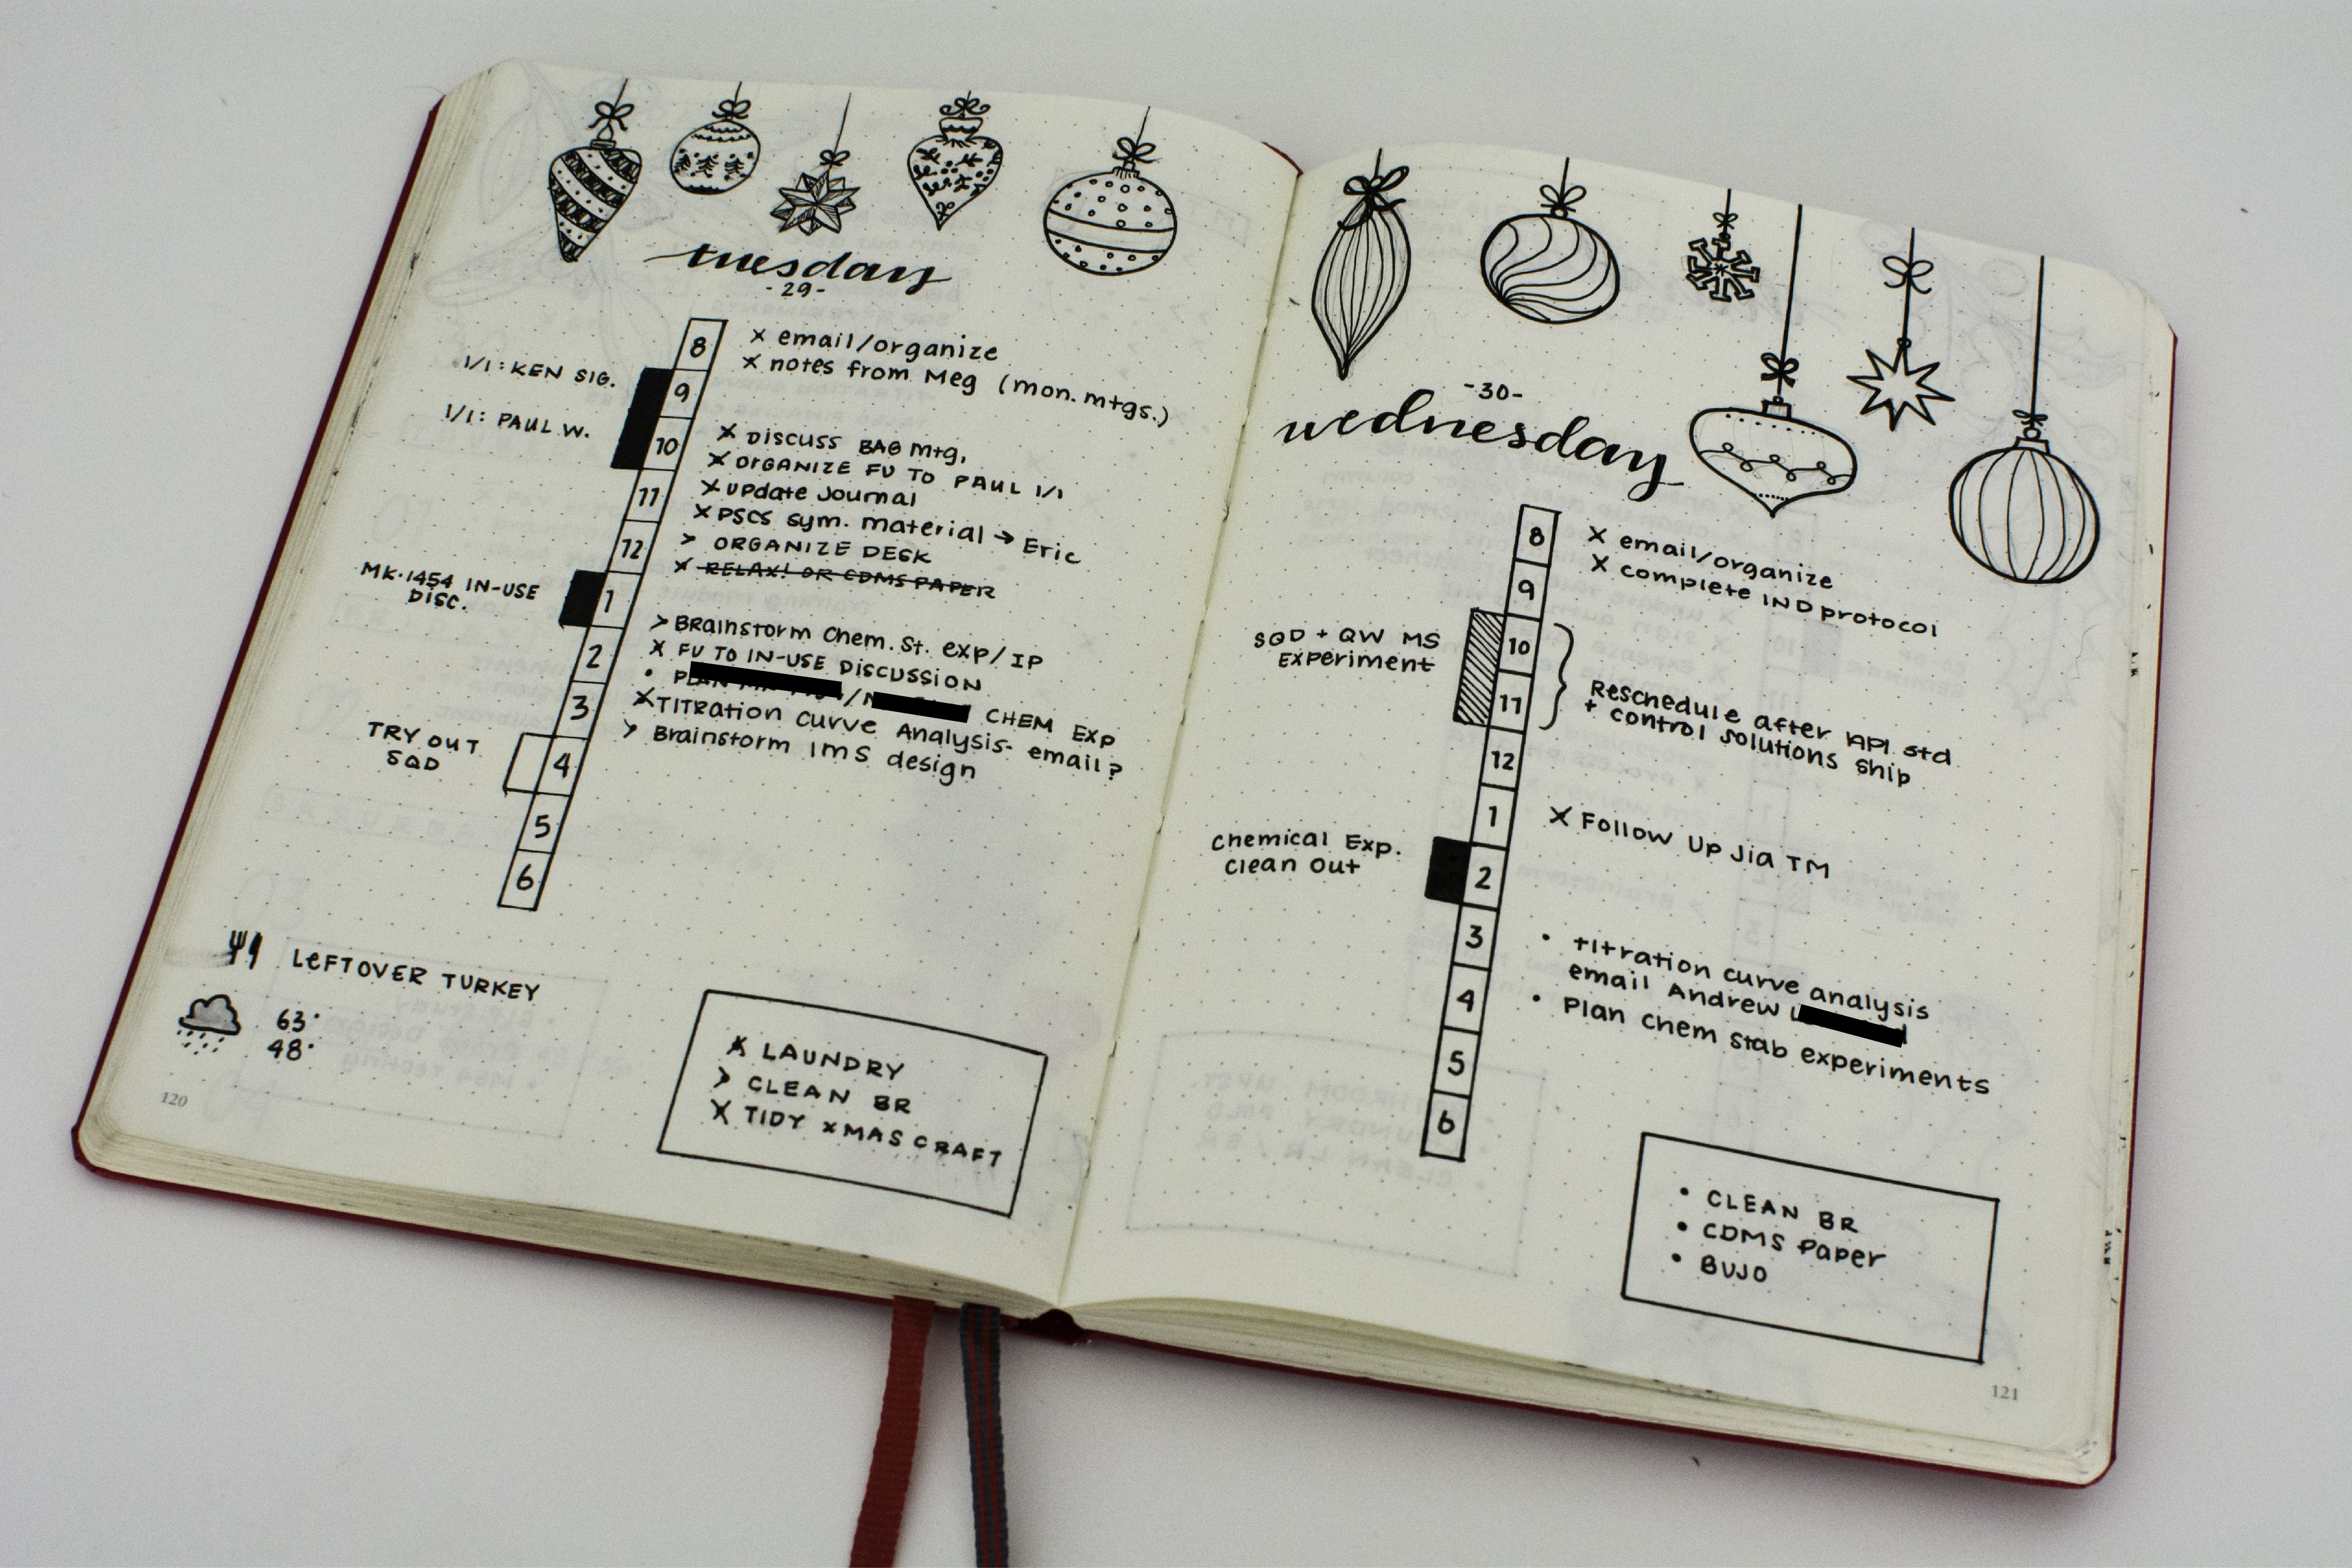 tuesday
-29-
8
9
10
11
12
1
2
3
4
5
6
1/1: KEN SIG.
1/1: PAUL W.
MK-1454 IN-USE
DISC.
TRY OUT
SQD
x email/organize
x notes from Meg (mon. mtgs.)
x DISCUSS BAG mtg.
x ORGANIZE FU TO PAUL 1/1
x update Journal
x PSCS sym. material → Eric
> ORGANIZE DESK
x RELAX! OR CDMS PAPER
> Brainstorm Chem. St. exp/IP
x FU TO IN-USE DISCUSSION
• PLAN / CHEM EXP
x TITRATION CURVE Analysis- email?
> Brainstorm IMS design
LEFTOVER TURKEY
63°
48°
x LAUNDRY
> CLEAN BR
x TIDY XMAS CRAFT
120
-30-
wednesday
8
9
10
11
12
1
2
3
4
5
6
SQD + QW MS
Experiment
Chemical Exp.
Clean Out
x email/organize
x complete IND protocol
Reschedule after API std
+ control solutions ship
x Follow Up Jia TM
• titration curve analysis
email Andrew
• Plan chem stab experiments
• CLEAN BR
• CDMS Paper
• BUJO
121